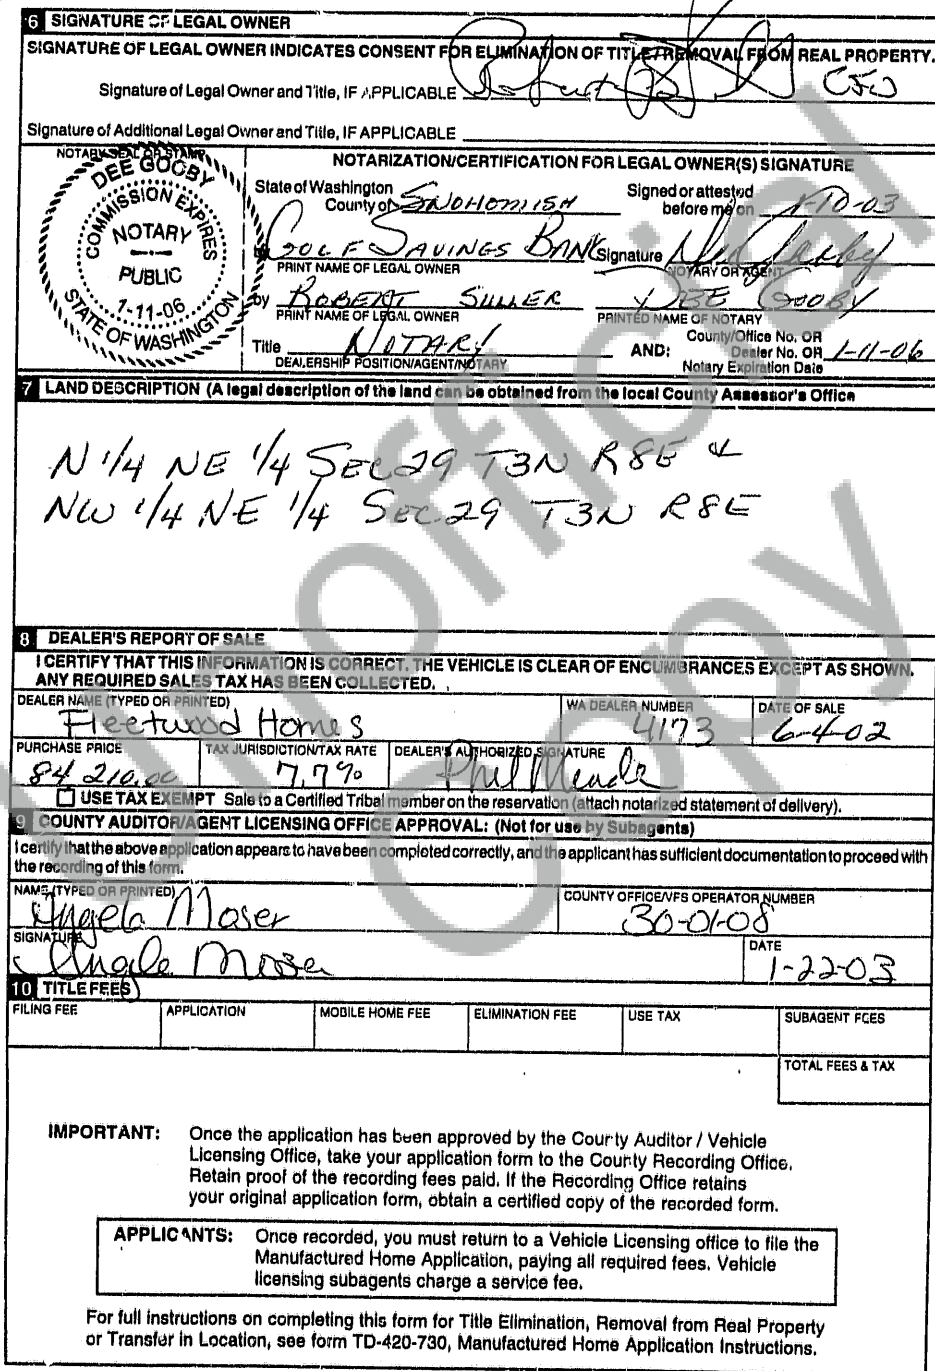 6 SIGNATURE OF LEGAL OWNER
SIGNATURE OF LEGAL OWNER INDICATES CONSENT FOR ELIMINATION OF TITLE/REMOVAL FROM REAL PROPERTY.
Signature of Legal Owner and Title, IF APPLICABLE
Signature of Additional Legal Owner and Title, IF APPLICABLE
NOTARY SEAL OR STAMP
DEE GOOBY
COMMISSION EXPIRES
NOTARY
PUBLIC
1-11-06
STATE OF WASHINGTON
NOTARIZATION/CERTIFICATION FOR LEGAL OWNER(S) SIGNATURE
State of Washington
County of SNOHOMISH
Signed or attested
before me on 1-10-03
by GOLF SAVINGS BANK Signature
PRINT NAME OF LEGAL OWNER NOTARY OR AGENT
by ROBERT SULLER DEE GOOBY
PRINT NAME OF LEGAL OWNER PRINTED NAME OF NOTARY
Title NOTARY
DEALERSHIP POSITION/AGENT/NOTARY
AND: County/Office No. OR
Dealer No. OR 1-11-06
Notary Expiration Date
7 LAND DESCRIPTION (A legal description of the land can be obtained from the local County Assessor's Office
N 1/4 NE 1/4 SEC 29 T3N R8E &
NW 1/4 NE 1/4 SEC 29 T3N R8E
8 DEALER'S REPORT OF SALE
I CERTIFY THAT THIS INFORMATION IS CORRECT. THE VEHICLE IS CLEAR OF ENCUMBRANCES EXCEPT AS SHOWN.
ANY REQUIRED SALES TAX HAS BEEN COLLECTED.
DEALER NAME (TYPED OR PRINTED) WA DEALER NUMBER DATE OF SALE
Fleetwood Homes 4173 6-4-02
PURCHASE PRICE TAX JURISDICTION/TAX RATE DEALER'S AUTHORIZED SIGNATURE
84 210.00 7.7% Phil Meade
USE TAX EXEMPT Sale to a Certified Tribal member on the reservation (attach notarized statement of delivery).
9 COUNTY AUDITOR/AGENT LICENSING OFFICE APPROVAL: (Not for use by Subagents)
I certify that the above application appears to have been completed correctly, and the applicant has sufficient documentation to proceed with
the recording of this form.
NAME (TYPED OR PRINTED) COUNTY OFFICE/VFS OPERATOR NUMBER
Angela Moser 30-01-08
SIGNATURE DATE
Angela Moser 1-22-03
10 TITLE FEES
FILING FEE APPLICATION MOBILE HOME FEE ELIMINATION FEE USE TAX SUBAGENT FEES
TOTAL FEES & TAX
IMPORTANT: Once the application has been approved by the County Auditor / Vehicle
Licensing Office, take your application form to the County Recording Office.
Retain proof of the recording fees paid. If the Recording Office retains
your original application form, obtain a certified copy of the recorded form.
APPLICANTS: Once recorded, you must return to a Vehicle Licensing office to file the
Manufactured Home Application, paying all required fees. Vehicle
licensing subagents charge a service fee.
For full instructions on completing this form for Title Elimination, Removal from Real Property
or Transfer in Location, see form TD-420-730, Manufactured Home Application Instructions.
Unofficial
Copy